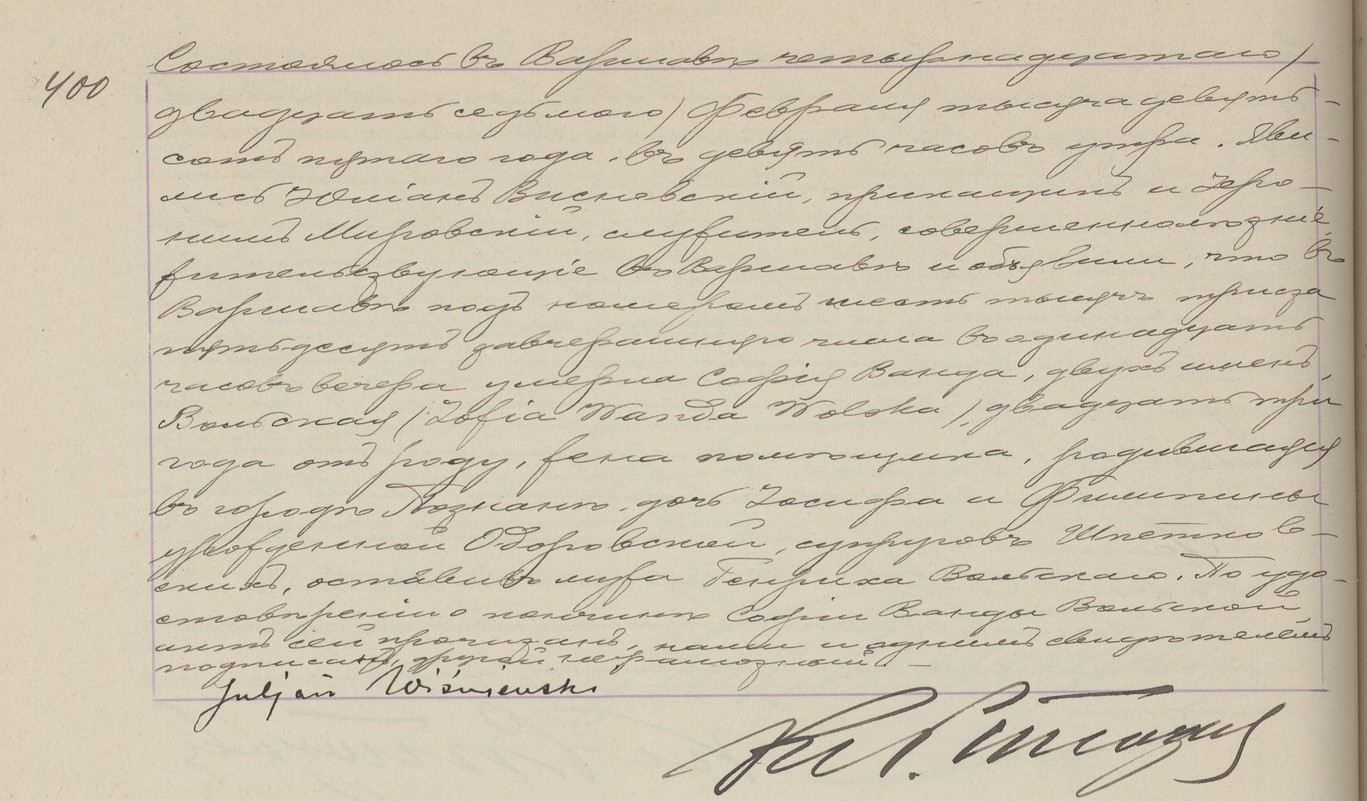 400
Состоялось въ Варшавѣ четырнадцатаго /
двадцать седьмого / Февраля тысяча девять-
сотъ пятаго года, въ девять часовъ утра. Яви-
лись Юліанъ Висневскій, приказщикъ и Іеро-
нимъ Мировскій, служитель, совершеннолѣтніе
жительствующіе въ Варшавѣ и объявили, что въ
Варшавѣ подъ номеромъ шесть тысячъ триста
пятьдесятъ завчерашняго числа въ одинадцать
часовъ вечера умерла Софія Ванда, двухъ именъ,
Вольская / Zofia Wanda Wolska /, двадцать три
года отъ роду, жена помощника, родившаяся
въ городѣ Познанѣ, дочь Іосифа и Филипины
урожденной Одоровской, супруговъ Шпетков-
скихъ, оставивъ мужа Генриха Вольскаго. По удо-
стовѣреніи о кончинѣ Софіи Ванды Вольской
актъ сей прочитанъ, нами и однимъ свидѣтелемъ
подписанъ, другой неграмотный. —
Juljan Wiśniewski